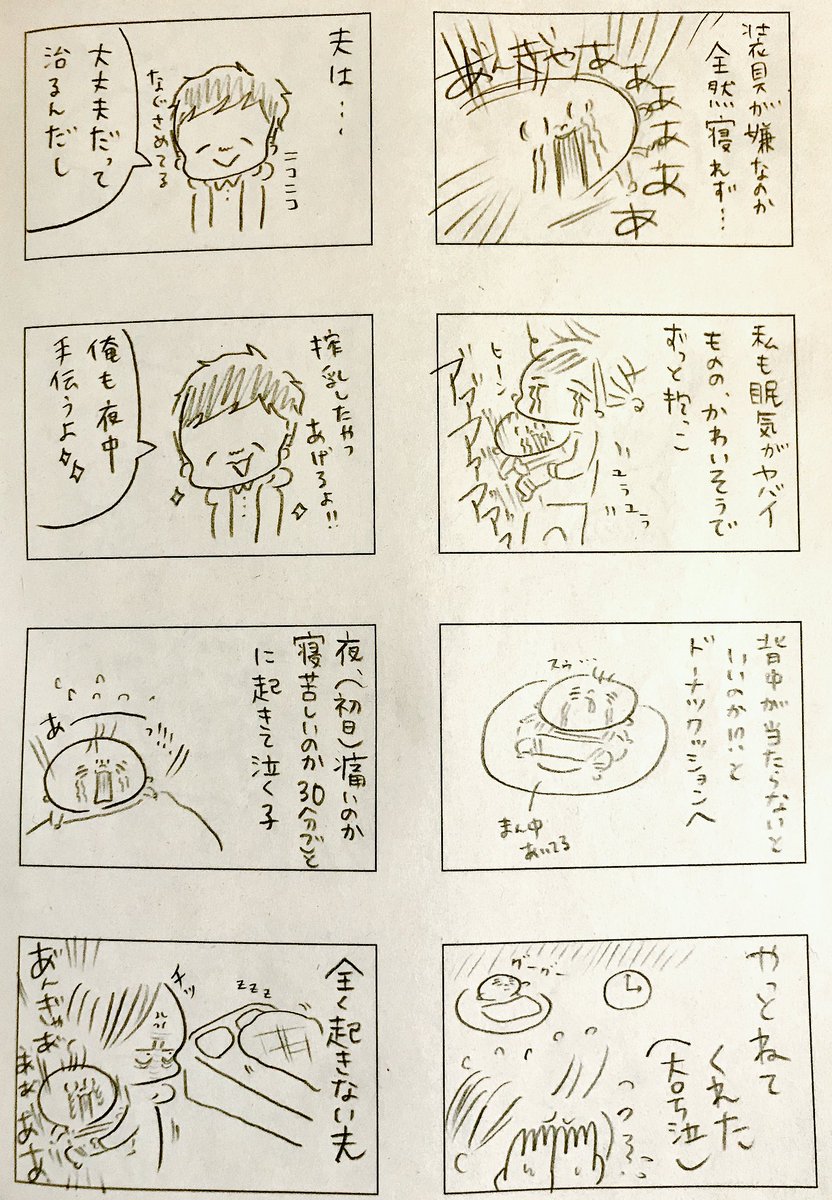 装具が嫌なのか
全然寝れず…
あんぎゃああああああ
私も眠気がヤバイ
ものの、かわいそうで
ずっと抱っこ
ヒーン
ユラユラ
アアアアアアアッ
背中が当たらないと
いいのかい!?と
ドーナツクッションへ
スゥ…
まん中
あいてる
やっとねて
くれた
(大号泣)
グーグー
っっ
夫は…
ニコニコ
なぐさめてる
大丈夫だって
治るんだし
搾乳したやつ
あげろよ!!
俺も夜中
手伝うよ
夜、(初日)痛いのか
寝苦しいのか30分ごと
に起きて泣く子
あ
っ!!!
全く起きない夫
zzz
チッ
あんぎゃあ
ああああ